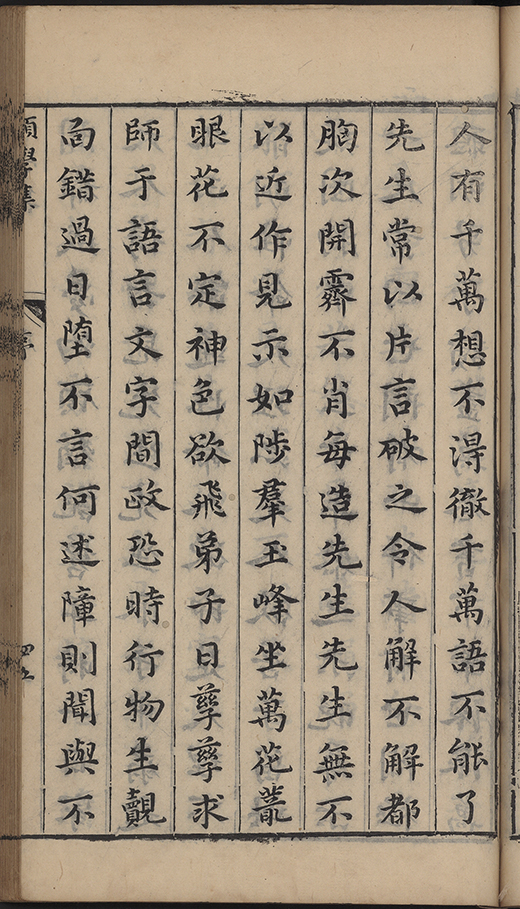 人有千萬想不得徹千萬語不能了
先生常以片言破之令人解不解都
胸次開霽不肖每造先生先生無不
以近作見示如陟羣玉峰坐萬花叢
眼花不定神色欲飛弟子日孳孳求
師于語言文字間政恐時行物生覿
面錯過日墮不言何述障則聞與不
學集 序